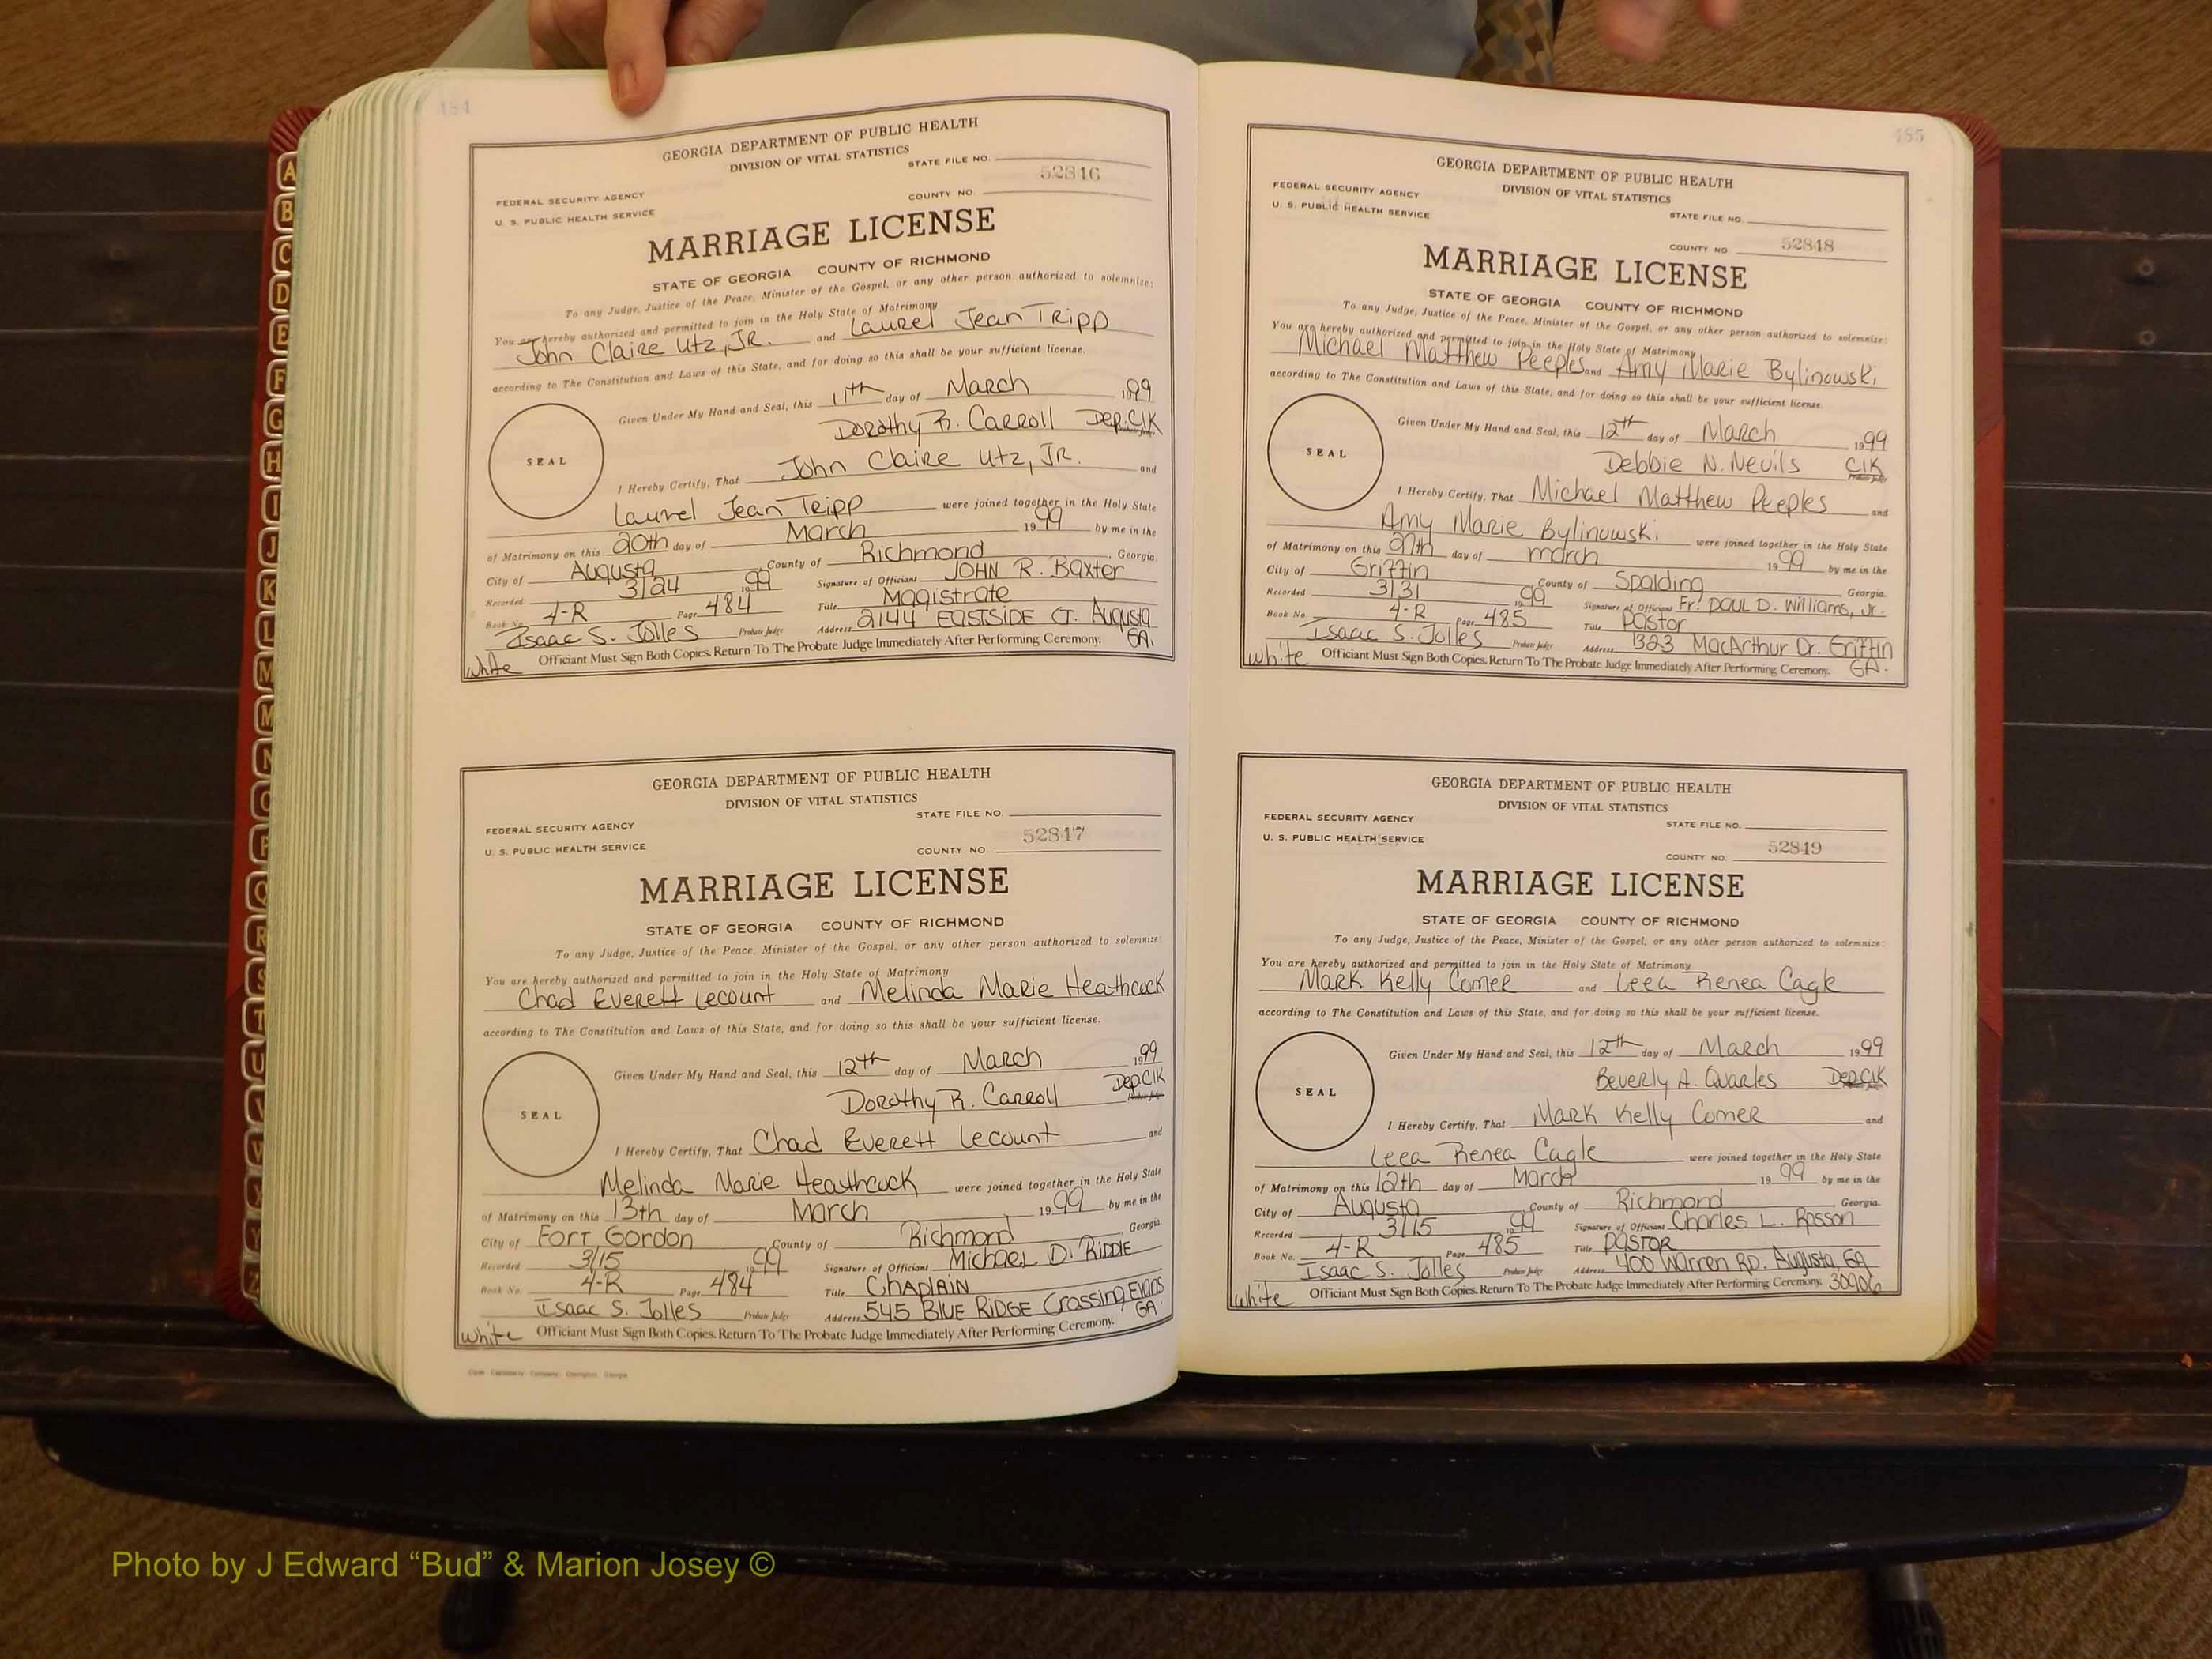 484
GEORGIA DEPARTMENT OF PUBLIC HEALTH
DIVISION OF VITAL STATISTICS
STATE FILE NO.
52846
FEDERAL SECURITY AGENCY
COUNTY NO
U. S. PUBLIC HEALTH SERVICE
MARRIAGE LICENSE
STATE OF GEORGIA COUNTY OF RICHMOND
To any Judge, Justice of the Peace, Minister of the Gospel, or any other person authorized to solemnize:
You are hereby authorized and permitted to join in the Holy State of Matrimony
John Claire Utz, JR. and Laurel Jean Tripp
according to The Constitution and Laws of this State, and for doing so this shall be your sufficient license.
Given Under My Hand and Seal, this 11th day of March 1999
Dorothy R. Carroll Dep. Clk
Probate Judge
SEAL
I Hereby Certify, That John Claire Utz, JR. and
Laurel Jean Tripp were joined together in the Holy State
of Matrimony on this 20th day of March 1999 by me in the
City of Augusta County of Richmond, Georgia.
Recorded 3/24 1999 Signature of Officiant JOHN R. Baxter
Book No. 4-R Page 484 Title Magistrate
Isaac S. Jolles Probate Judge Address 2144 EASTSIDE CT. Augusta GA.
White Officiant Must Sign Both Copies. Return To The Probate Judge Immediately After Performing Ceremony.
GEORGIA DEPARTMENT OF PUBLIC HEALTH
DIVISION OF VITAL STATISTICS
STATE FILE NO.
FEDERAL SECURITY AGENCY
52847
U. S. PUBLIC HEALTH SERVICE COUNTY NO
MARRIAGE LICENSE
STATE OF GEORGIA COUNTY OF RICHMOND
To any Judge, Justice of the Peace, Minister of the Gospel, or any other person authorized to solemnize:
You are hereby authorized and permitted to join in the Holy State of Matrimony
Chad Everett Lecount and Melinda Marie Heathcock
according to The Constitution and Laws of this State, and for doing so this shall be your sufficient license.
Given Under My Hand and Seal, this 12th day of March 1999
Dorothy R. Carroll Dep Clk
Probate Judge
SEAL
I Hereby Certify, That Chad Everett Lecount and
Melinda Marie Heathcock were joined together in the Holy State
of Matrimony on this 13th day of March 1999 by me in the
City of Fort Gordon County of Richmond, Georgia
Recorded 3/15 1999 Signature of Officiant Michael D. Riddle
Book No. 4-R Page 484 Title Chaplain
Isaac S. Jolles Probate Judge Address 545 Blue Ridge Crossing, Evans GA.
White Officiant Must Sign Both Copies. Return To The Probate Judge Immediately After Performing Ceremony.
485
GEORGIA DEPARTMENT OF PUBLIC HEALTH
DIVISION OF VITAL STATISTICS
FEDERAL SECURITY AGENCY
U. S. PUBLIC HEALTH SERVICE
STATE FILE NO.
COUNTY NO. 52848
MARRIAGE LICENSE
STATE OF GEORGIA COUNTY OF RICHMOND
To any Judge, Justice of the Peace, Minister of the Gospel, or any other person authorized to solemnize:
You are hereby authorized and permitted to join in the Holy State of Matrimony
Michael Matthew Peeples and Amy Marie Bylinowski
according to The Constitution and Laws of this State, and for doing so this shall be your sufficient license.
Given Under My Hand and Seal, this 12th day of March 1999
Debbie N. Nevils Clk
Probate Judge
SEAL
I Hereby Certify, That Michael Matthew Peeples and
Amy Marie Bylinowski were joined together in the Holy State
of Matrimony on this 27th day of march 1999 by me in the
City of Griffin County of Spalding Georgia.
Recorded 3/31 1999 Signature of Officiant Fr. PAUL D. Williams, Jr.
Book No. 4-R Page 485 Title Pastor
Isaac S. Jolles Probate Judge Address 1323 MacArthur Dr. Griffin GA.
White Officiant Must Sign Both Copies. Return To The Probate Judge Immediately After Performing Ceremony.
GEORGIA DEPARTMENT OF PUBLIC HEALTH
DIVISION OF VITAL STATISTICS
FEDERAL SECURITY AGENCY STATE FILE NO.
U. S. PUBLIC HEALTH SERVICE
COUNTY NO. 52849
MARRIAGE LICENSE
STATE OF GEORGIA COUNTY OF RICHMOND
To any Judge, Justice of the Peace, Minister of the Gospel, or any other person authorized to solemnize:
You are hereby authorized and permitted to join in the Holy State of Matrimony
Mark Kelly Comer and Leea Renea Cagle
according to The Constitution and Laws of this State, and for doing so this shall be your sufficient license.
Given Under My Hand and Seal, this 12th day of March 1999
Beverly A. Quarles Dep Clk
SEAL
I Hereby Certify, That Mark Kelly Comer and
Leea Renea Cagle were joined together in the Holy State
of Matrimony on this 12th day of March 1999 by me in the
City of Augusta County of Richmond Georgia.
Recorded 3/15 1999 Signature of Officiant Charles L. Rosson
Book No. 4-R Page 485 Title PASTOR
Isaac S. Jolles Probate Judge Address 400 Warren RD. Augusta, GA 30906
White Officiant Must Sign Both Copies. Return To The Probate Judge Immediately After Performing Ceremony.
A
B
C
D
E
F
G
H
I
J
K
L
M
M
N
O
P
Q
R
S
T
U
V
W
X
Y
Z
Photo by J Edward “Bud” & Marion Josey ©